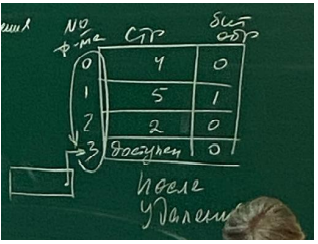 № ф-ма СТР бит обр
0 4 0
1 5 1
2 2 0
3 доступен 0
После
удаления